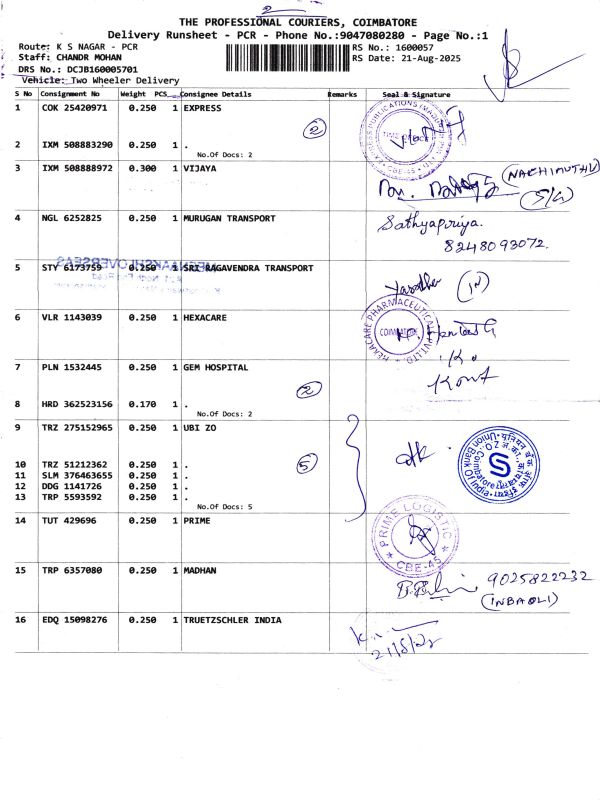 2
THE PROFESSIONAL COURIERS, COIMBATORE
Delivery Runsheet - PCR - Phone No.:9047080280 - Page No.:1
Route: K S NAGAR - PCR
RS No.: 1600057
Staff: CHANDR MOHAN
RS Date: 21-Aug-2025
DRS No.: DCJB160005701
Vehicle: Two Wheeler Delivery
S No Consignment No Weight PCS Consignee Details Remarks Seal & Signature
1 COK 25420971 0.250 1 EXPRESS
2
2 IXM 508883290 0.250 1 .
No.Of Docs: 2
3 IXM 508888972 0.300 1 VIJAYA
(NACHIMUTHU)
S/G
4 NGL 6252825 0.250 1 MURUGAN TRANSPORT
Sathyapriya.
8248093072.
5 STY 6173759 0.250 1 SRI RAGAVENDRA TRANSPORT
(IN)
6 VLR 1143039 0.250 1 HEXACARE
HEXACARE PHARMACEUTICAL PVT LTD
COIMBATORE
7 PLN 1532445 0.250 1 GEM HOSPITAL
2
8 HRD 362523156 0.170 1 .
No.Of Docs: 2
9 TRZ 275152965 0.250 1 UBI ZO
10 TRZ 51212362 0.250 1 .
5
11 SLM 376463655 0.250 1 .
12 DDG 1141726 0.250 1 .
13 TRP 5593592 0.250 1 .
No.Of Docs: 5
Union Bank Of India
Z.O., Coimbatore
14 TUT 429696 0.250 1 PRIME
PRIME LOGISTIC
* CBE-45 *
15 TRP 6357080 0.250 1 MADHAN
9025822232
16 EDQ 15098276 0.250 1 TRUETZSCHLER INDIA